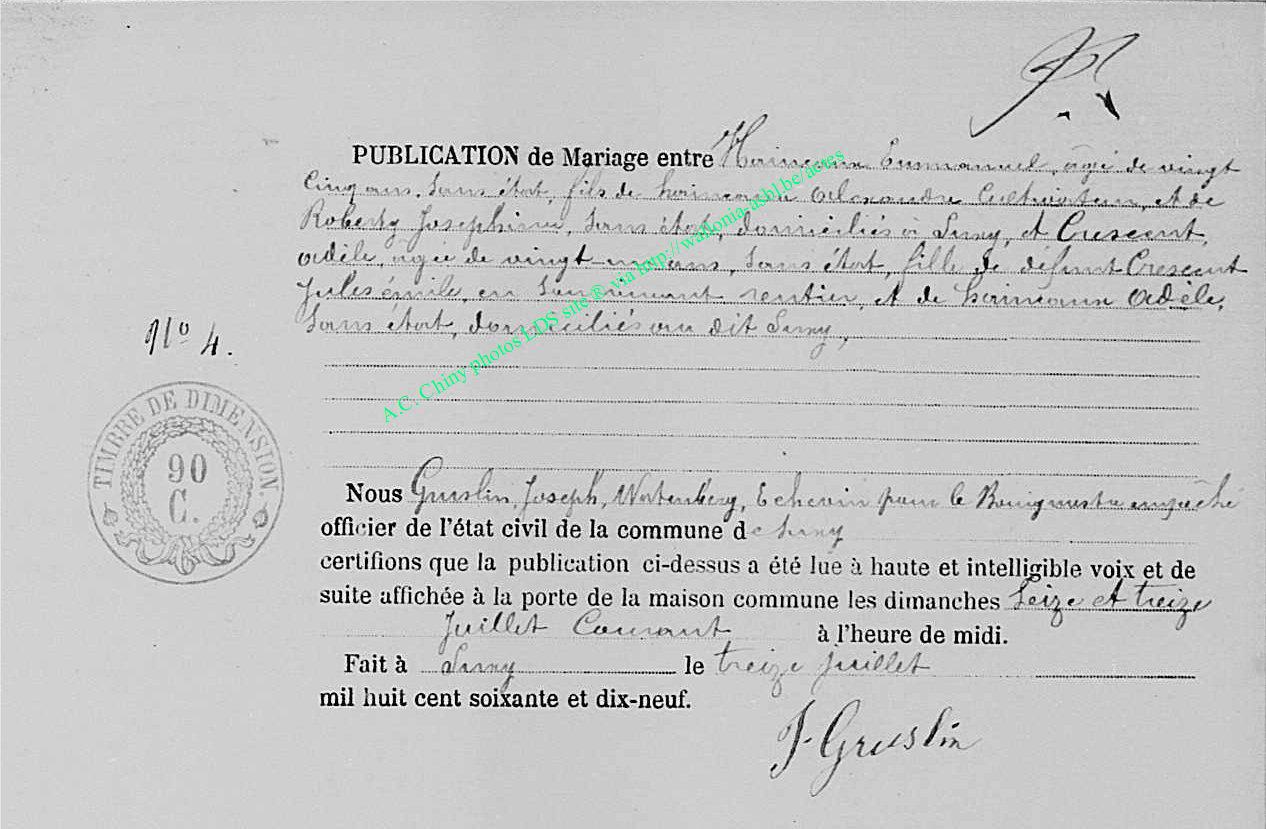 PUBLICATION de Mariage entre Hainaux Emmanuel, âgé de vingt
Cinq ans, Sans état, fils de hainaux Alexandre Cultivateur, et de
Roberty Josephine, Sans état, domiciliés à Suxy, et Crescent,
Adèle, âgée de vingt un ans, Sans état, fille de défunt Crescent
Jules émile, en Son vivant rentier, et de hainaux Adèle,
Sans état, domiciliés au dit Suxy,
N° 4.
TIMBRE DE DIMENSION.
90
C.
Nous Gruslin, Joseph, Echevin pour le Bourgmestre empêché
officier de l'état civil de la commune de Suxy
certifions que la publication ci-dessus a été lue à haute et intelligible voix et de
suite affichée à la porte de la maison commune les dimanches et treize
Juillet Courant à l'heure de midi.
Fait à Suxy le treize juillet
mil huit cent soixante et dix-neuf.
J. Gruslin
A.C. Chiny photos LDS site® via http://wallonia-asbl.be/actes